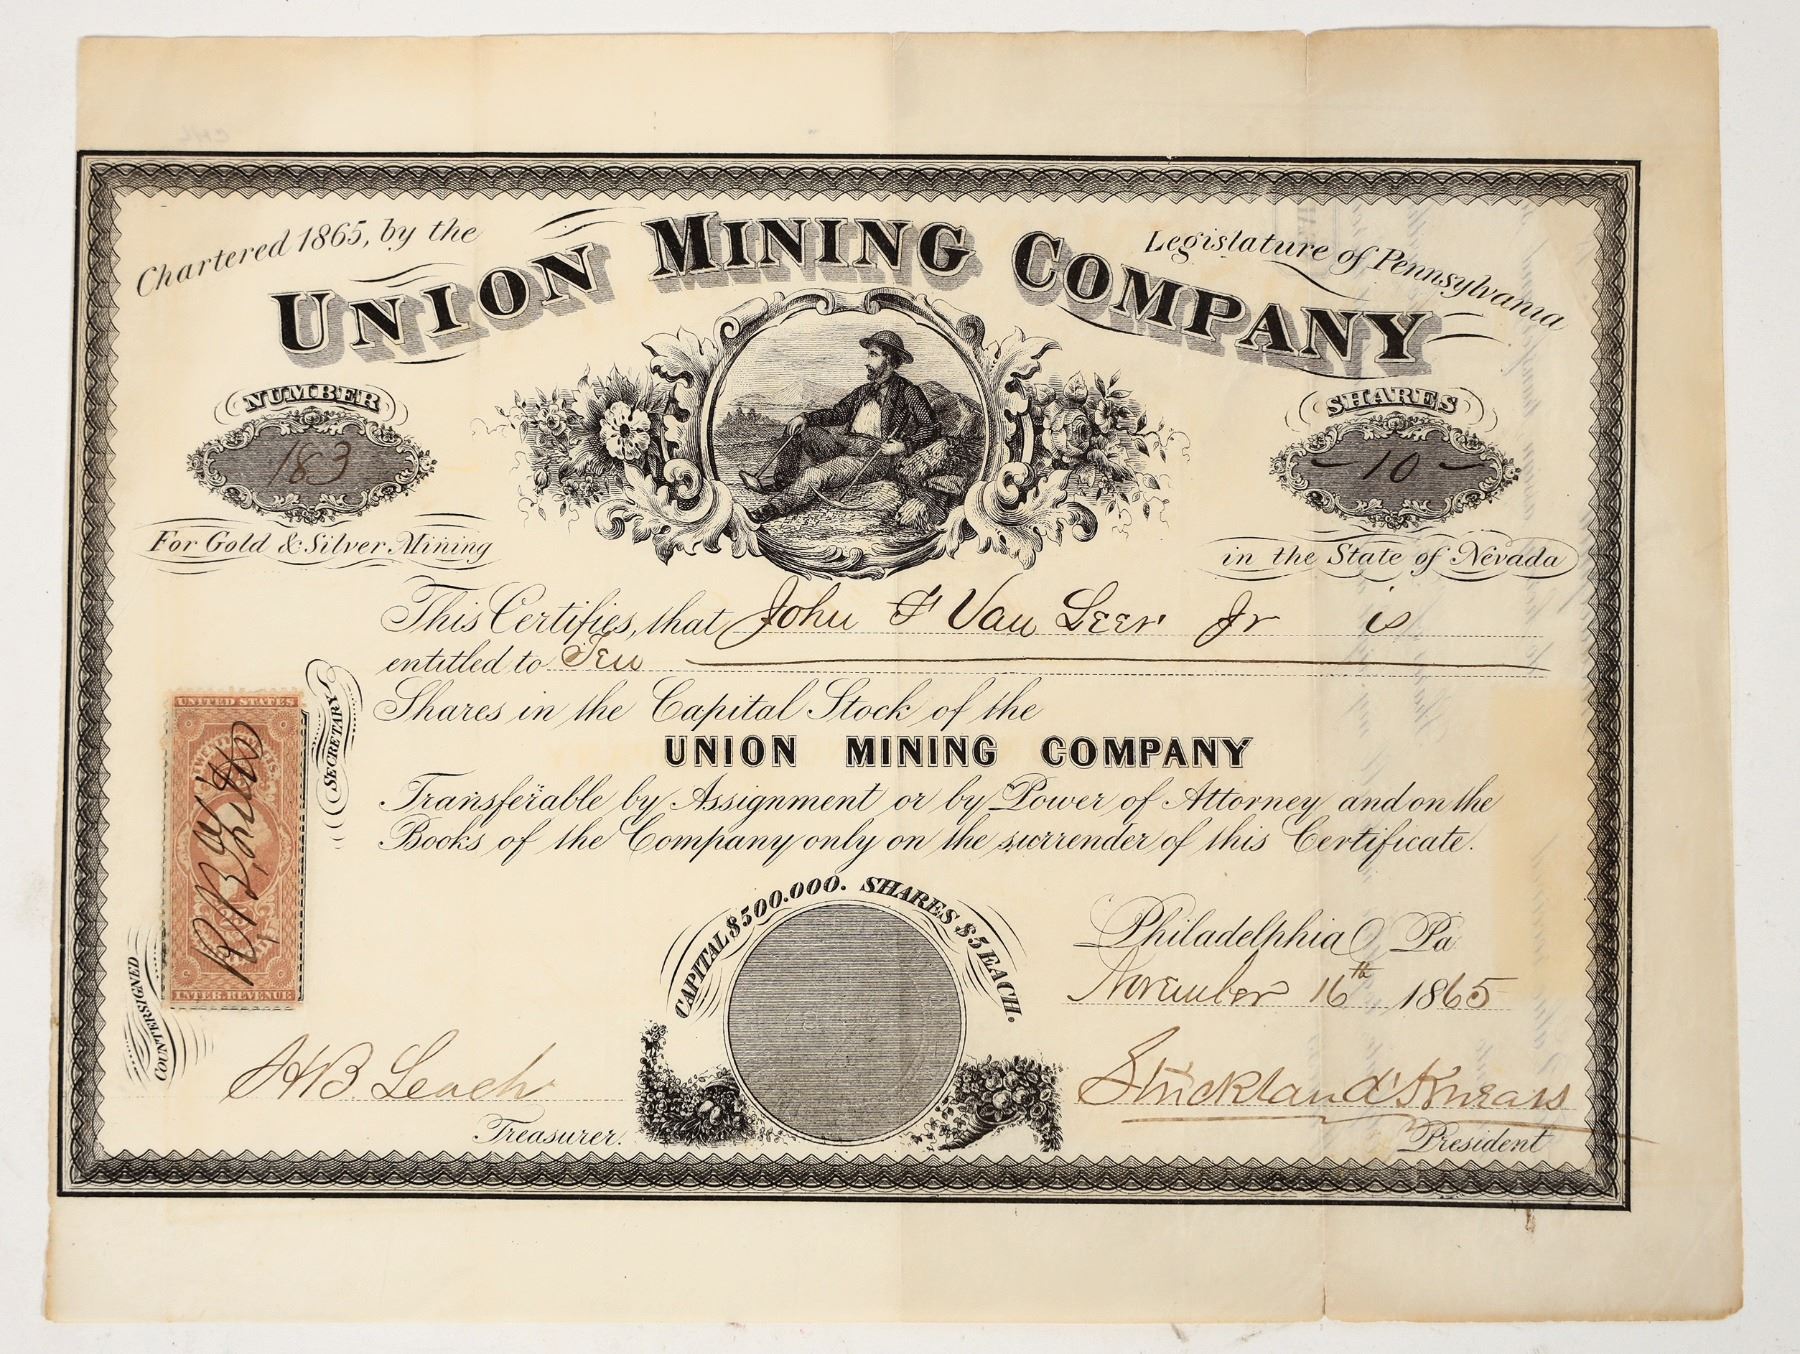 Chartered 1865, by the Legislature of Pennsylvania
UNION MINING COMPANY
NUMBER
183
SHARES
- 10 -
For Gold & Silver Mining
in the State of Nevada
This Certifies, that John F Van Leer Jr is
entitled to Ten
Shares in the Capital Stock of the
UNION MINING COMPANY
Transferable by Assignment or by Power of Attorney and on the
Books of the Company only on the surrender of this Certificate.
UNITED STATES
INTER. REVENUE
SECRETARY
COUNTERSIGNED
CAPITAL $500.000. SHARES $5 EACH.
Philadelphia Pa
November 16th 1865
H B. Leach
Treasurer.
Strickland Kneass
President